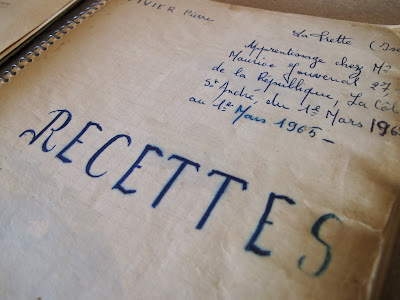 VIVIER Pierre
La Frette (Isè
Apprentissage chez Mr
Maurice Jouvenal 27,
de la République, La Côt
St André, du 1er Mars 196
au 1er Mars 1965-
RECETTES